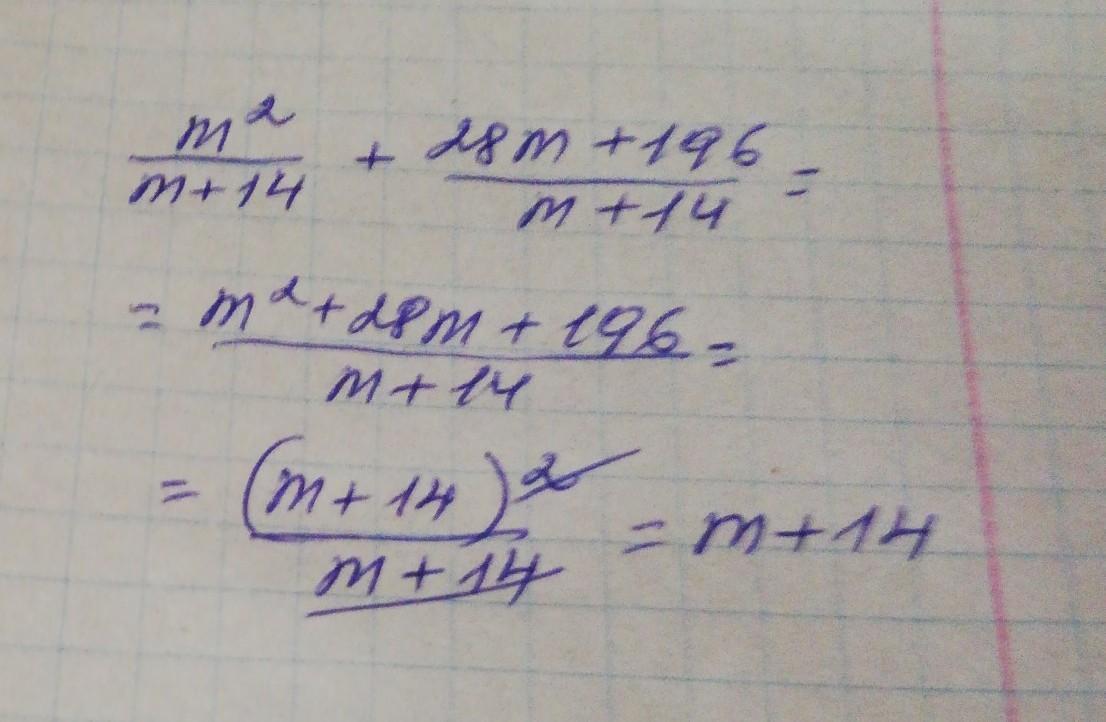 m²/(m+14) + (28m+196)/(m+14) =
= (m²+28m+196)/(m+14) =
= (m+14)²/(m+14) = m+14